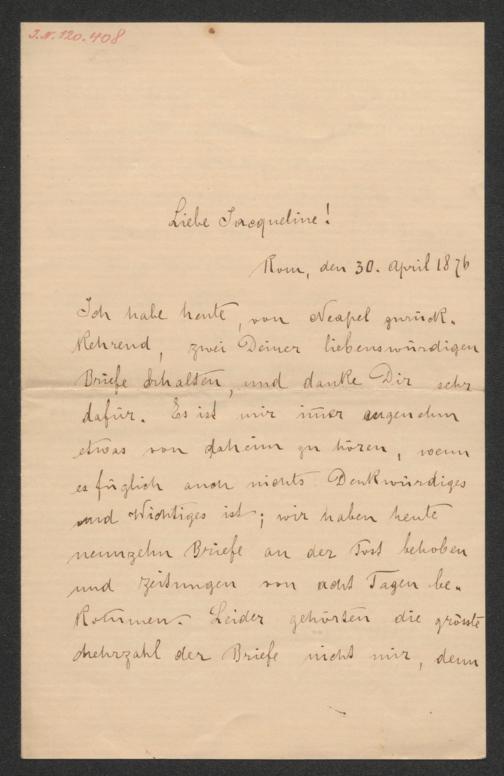 J.N. 120.408
Liebe Jacqueline!
Rom, den 30. April 1876
Ich habe heute, von Neapel zurück-
kehrend, zwei Deiner liebenswürdigen
Briefe erhalten, und danke Dir sehr
dafür. Es ist mir im̅er angenehm
etwas von daheim zu hören, wenn
es füglich auch nichts Denkwürdiges
und Wichtiges ist; wir haben heute
neunzehn Briefe an der Post behoben
und Zeitungen von acht Tagen be-
kommen. Leider gehörten die grösste
Mehrzahl der Briefe nicht mir, denn